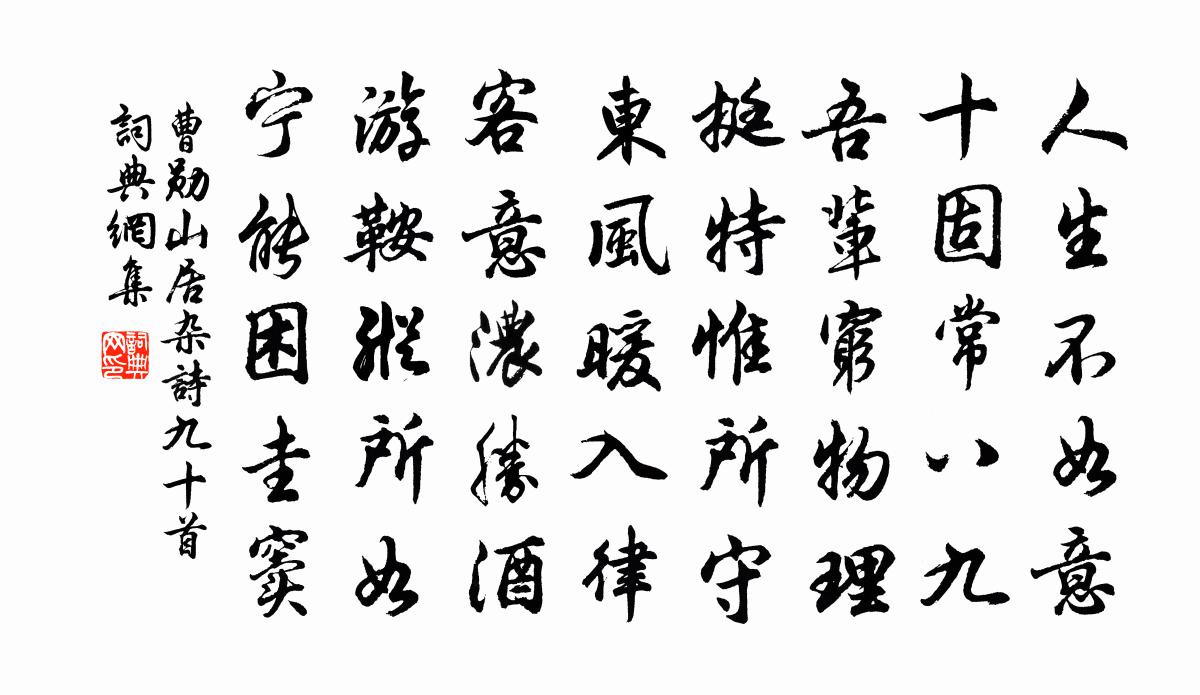 人生不如意
十固常八九
吾輩窮物理
挺特惟所守
東風暖入律
客意濃勝酒
游鞍縱所如
宁能困圭窦
曹勛山居杂詩九十首
詞典網集
詞典网印